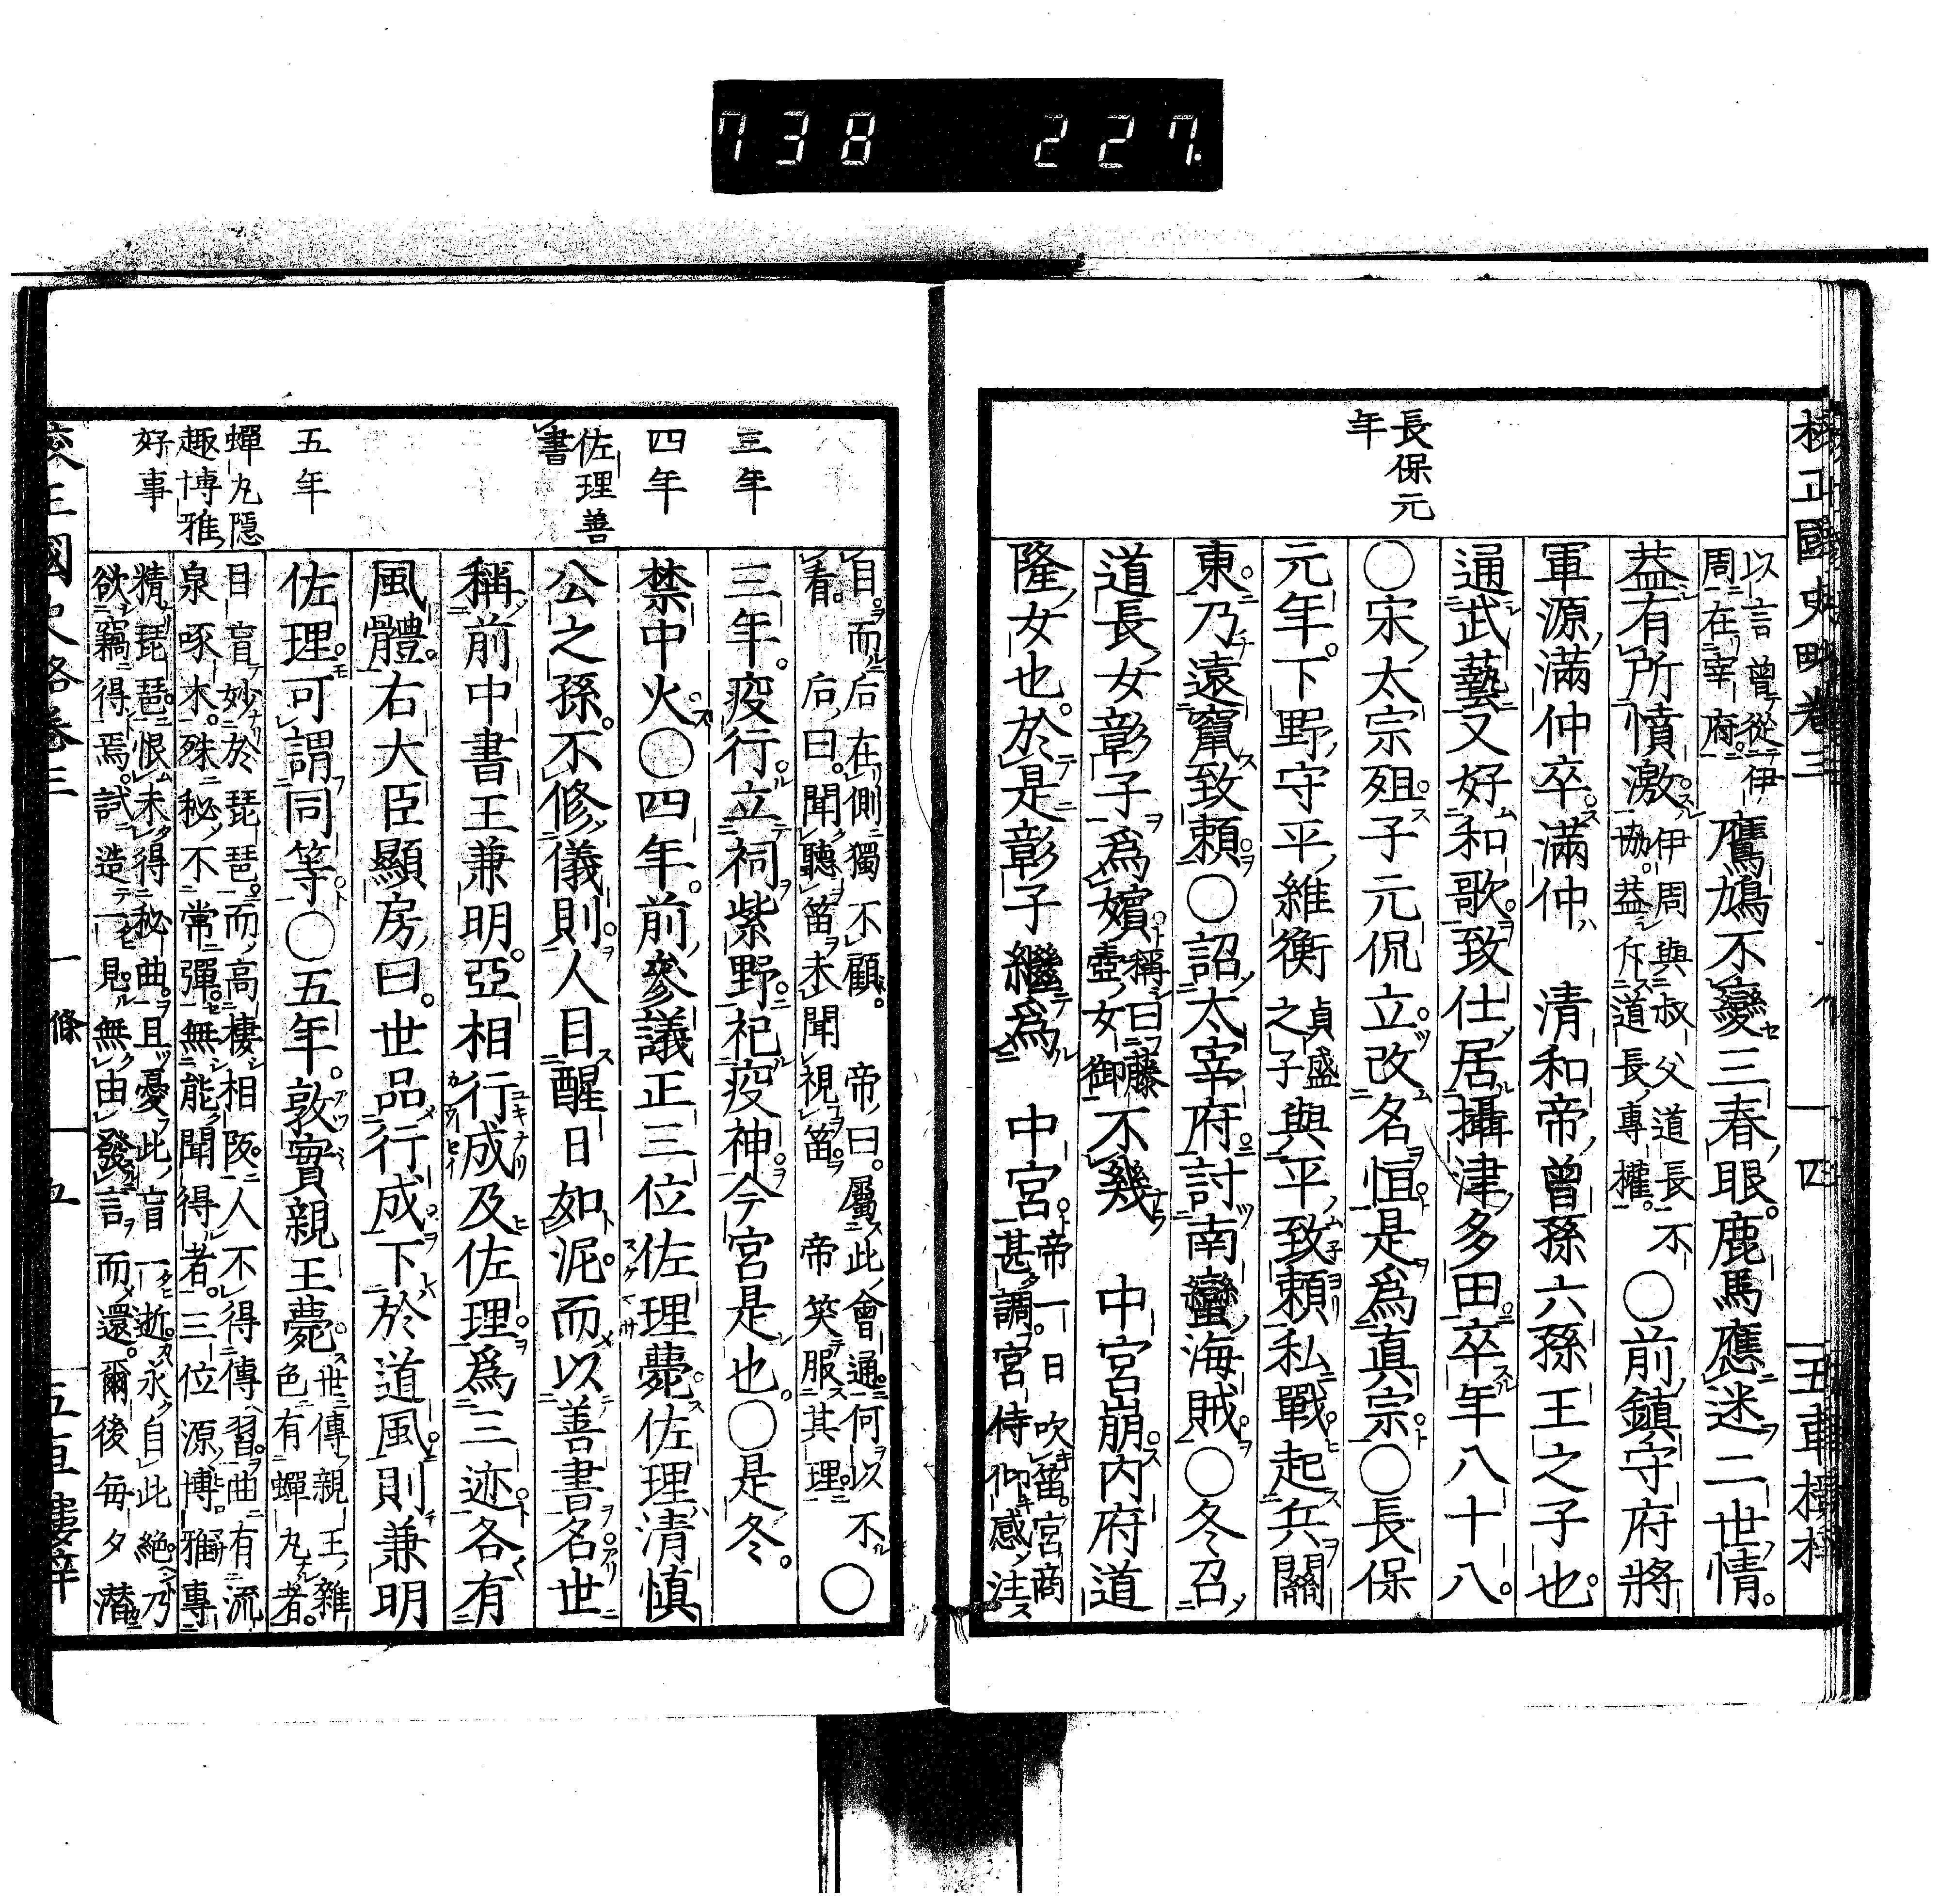 738 227.
校正國史略卷三 一四 五車樓梓
長保元
年
以言曾從伊
周在宰府
鷹鳩不變三春眼。鹿馬應迷二世情。
益有所憤激
伊周與叔父道長不
協。益斥道長專權。
〇前鎭守府將
軍源滿仲卒滿仲 清和帝曾孫六孫王之子也。
通武藝又好和歌致仕居攝津多田卒年八十八。
〇宋太宗殂子元侃立改名恒是爲眞宗〇長保
元年。下野守平維衡
貞盛
之子
與平致賴私戰起兵關
東乃遠竄致賴〇詔太宰府討南蠻海賊〇冬召
道長女彰子爲嬪
稱曰藤
壺女御
不幾 中宮崩內府道
隆女也。於是彰子繼爲 中宮
帝一日吹笛。宮商
甚調。宮侍仰感注
目。而后在側獨不顧。 帝曰。屬此會通。何以不
看。 后曰。聞聽笛。未聞視笛。 帝笑服其理。
〇
三年
三年。疫行立祠紫野祀疫神今宮是也。〇是冬。
四年
禁中火〇四年。前參議正三位佐理薨佐理清愼
佐理善
書
公之孫。不修儀則人目醒日如泥而以善書名世
稱前中書王兼明。亞相行成及佐理爲三迹各有
風體。右大臣顯房曰。世品行成下於道風則兼明
五年
佐理可謂同等〇五年。敦實親王薨
世傳親王雜
色有蟬丸者。
蟬丸隱
趣博雅
好事
目盲妙於琵琶。而高棲相阪。人不得傳習。曲有流
泉啄木。殊秘不常彈。無能聞得者。三位源博雅專
精琵琶。恨未得秘曲。且憂此盲一逝永自此絕。乃
欲竊得焉。試造一見無由發言而還。爾後每夕潛
國史略卷三 一條 一五 五車樓梓